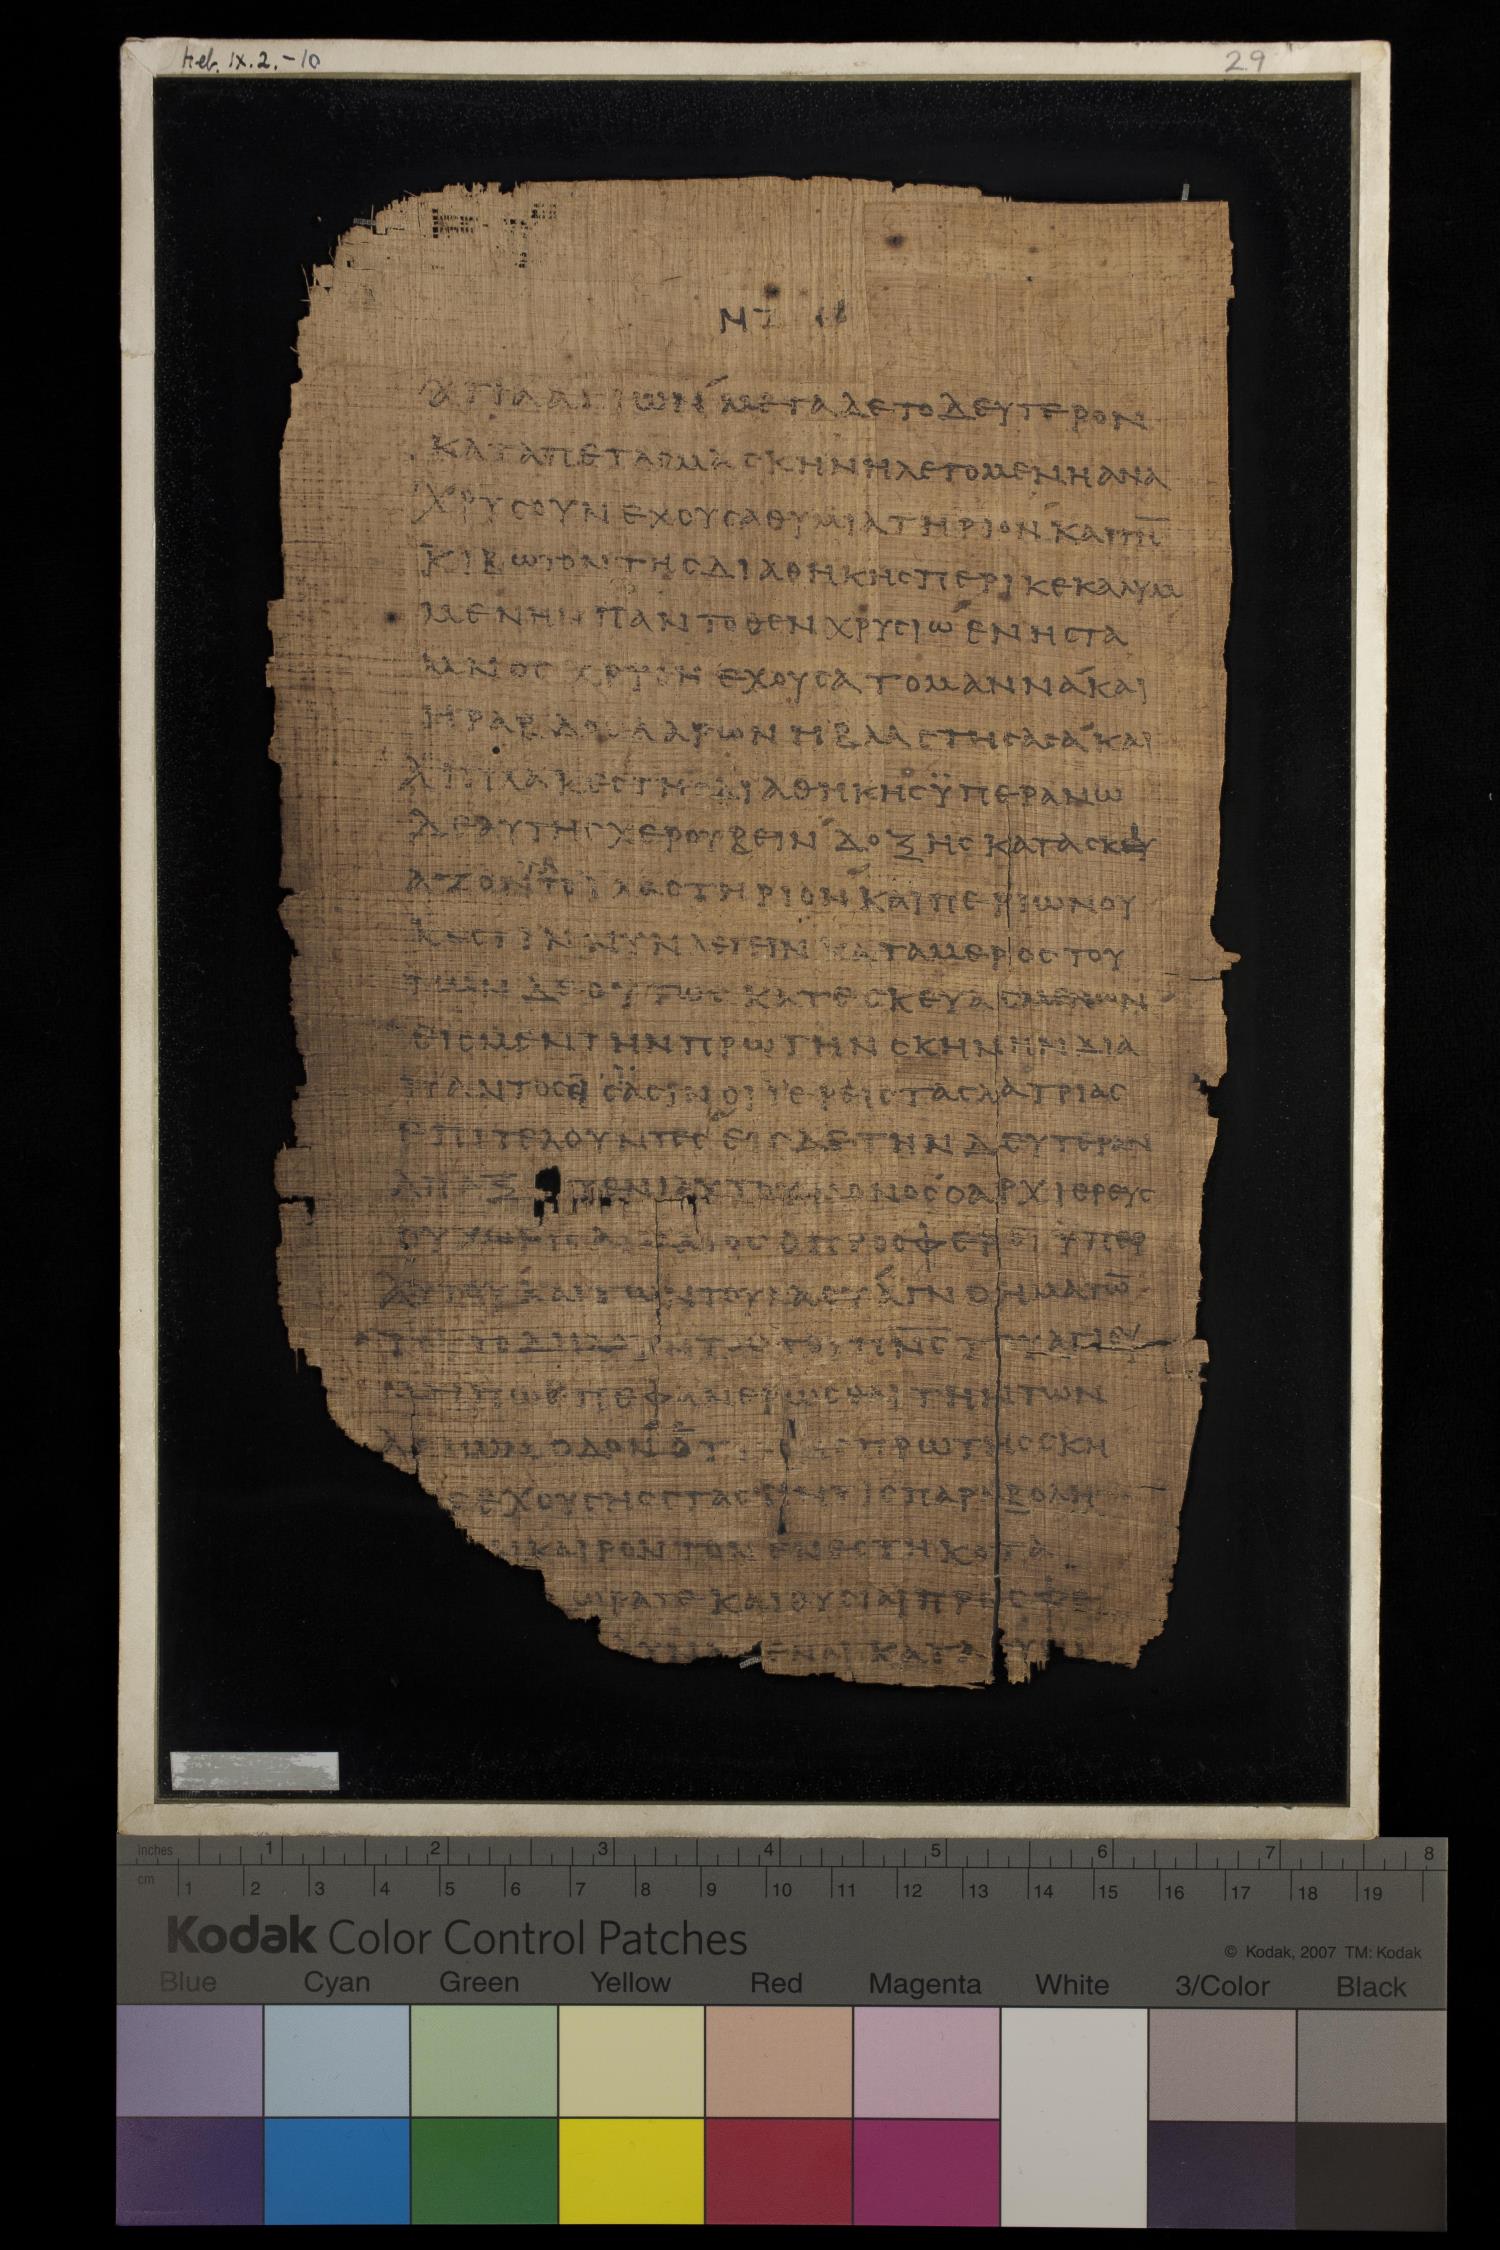 Heb. IX. 2.-10
29
ΑΓΙΑ ΑΓΙΩΝ ΜΕΤΑ ΔΕ ΤΟ ΔΕΥΤΕΡΟΝ
ΚΑΤΑΠΕΤΑΣΜΑ ϹΚΗΝΗ ΛΕΓΟΜΕΝΗ ΑΝΑ
ΧΡΥϹΟΥΝ ΕΧΟΥϹΑ ΘΥΜΙΑΤΗΡΙΟΝ ΚΑΙ
ΚΙΒΩΤΟΝ ΤΗϹ ΔΙΑΘΗΚΗϹ ΠΕΡΙΚΕΚΑΛΥΜ
ΜΕΝΗΝ ΠΑΝΤΟΘΕΝ ΧΡΥϹΙΩ ΕΝ Η ϹΤΑ
ΜΝΟϹ ΧΡΥϹΗ ΕΧΟΥϹΑ ΤΟ ΜΑΝΝΑ ΚΑΙ
Η ΡΑΒΔΟϹ ΑΑΡΩΝ Η ΒΛΑϹΤΗϹΑϹΑ ΚΑΙ
ΑΙ ΠΛΑΚΕϹ ΤΗϹ ΔΙΑΘΗΚΗϹ ΫΠΕΡΑΝΩ
ΔΕ ΑΥΤΗϹ ΧΕΡΟΥΒΕΙΝ ΔΟΞΗϹ ΚΑΤΑϹΚΕΥ
ΑΖΟΝΤΑ ΤΟ ΙΛΑϹΤΗΡΙΟΝ ΚΑΙ ΠΕΡΙ ΩΝ ΟΥ
Κ ΕϹΤΙΝ ΝΥΝ ΛΕΓΕΙΝ ΚΑΤΑ ΜΕΡΟϹ ΤΟΥ
ΤΩΝ ΔΕ ΟΥΤΩϹ ΚΑΤΕϹΚΕΥΑϹΜΕΝΩΝ
ΕΙϹ ΜΕΝ ΤΗΝ ΠΡΩΤΗΝ ϹΚΗΝΗΝ ΔΙΑ
ΠΑΝΤΟϹ ΟΙ ΙΕΡΕΙϹ ΤΑϹ ΛΑΤΡΙΑϹ
ΕΠΙΤΕΛΟΥΝΤΕϹ ΕΙϹ ΔΕ ΤΗΝ ΔΕΥΤΕΡΑΝ
ΑΠΑΞ ΤΟΥ ΕΝΙΑΥΤΟΥ ΜΟΝΟϹ Ο ΑΡΧΙΕΡΕΥϹ
ΟΥ ΧΩΡΙϹ ΑΙΜΑΤΟϹ Ο ΠΡΟϹΦΕΡΕΙ ΥΠΕΡ
ΑΥΤΟΥ ΚΑΙ ΤΩΝ ΤΟΥ ΛΑΟΥ ΑΓΝΟΗΜΑΤΩ̅
ΤΟΥ ΑΓΙΟΥ
ΜΗΠΩ ΠΕΦΑΝΕΡΩϹΘΑΙ ΤΗΝ ΤΩΝ
ΑΓΙΩΝ ΟΔΟΝ ΠΡΩΤΗϹ ϹΚΗ
ΕΧΟΥϹΗϹ ϹΤΑϹΙΝ ΗΤΙϹ ΠΑΡΑΒΟΛΗ
ΚΑΙΡΟΝ ΤΟΝ ΕΝΕϹΤΗΚΟΤΑ
ΩΡΑ ΤΕ ΚΑΙ ΘΥϹΙΑΙ ΠΡΟϹΦΕ
ΚΑΤΑ
inches 1 2 3 4 5 6 7 8
cm 1 2 3 4 5 6 7 8 9 10 11 12 13 14 15 16 17 18 19
Kodak Color Control Patches
© Kodak, 2007 TM: Kodak
Blue Cyan Green Yellow Red Magenta White 3/Color Black